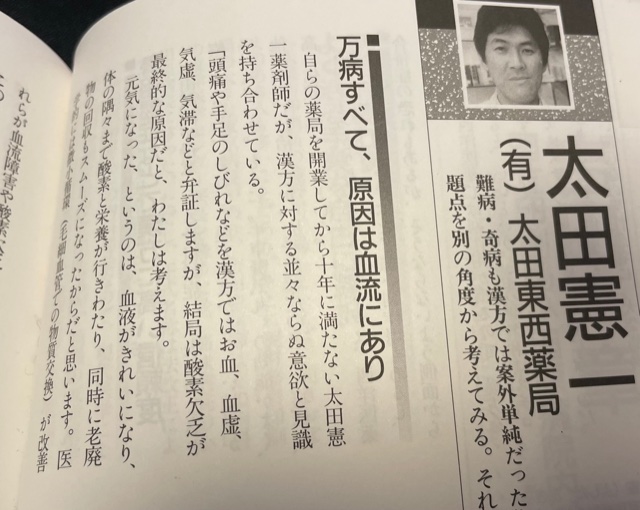 太田憲一
(有) 太田東西薬局
難病・奇病も漢方では案外単純だった
題点を別の角度から考えてみる。それ
万病すべて、原因は血流にあり
自らの薬局を開業してから十年に満たない太田憲
一薬剤師だが、漢方に対する並々ならぬ意欲と見識
を持ち合わせている。
「頭痛や手足のしびれなどを漢方ではお血、血虚、
気虚、気滞などと弁証しますが、結局は酸素欠乏が
最終的な原因だと、わたしは考えます。
元気になった、というのは、血液がきれいになり、
体の隅々まで酸素と栄養が行きわたり、同時に老廃
物の回収もスムーズになったからだと思います。医
学的には微小循環(毛細血管での物質交換)が改善
れらが血流障害や酸素欠乏